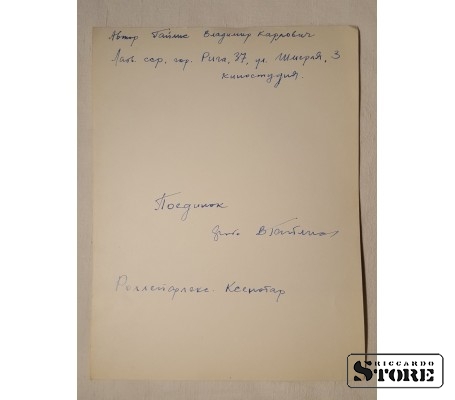 Автор Гайлис Владимир Карлович
Латв. сср, гор. Рига, 37, ул. Шмерля, 3
киностудия.
Поединок
фото В Гайлис
Роллейфлекс. Ксенотар
RICCARDO
STORE